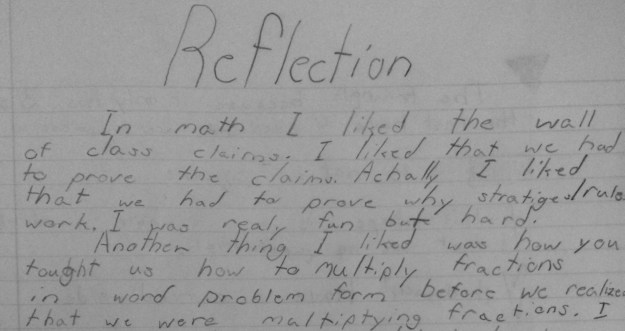 Reflection
In math I liked the wall
of class claims. I liked that we had
to prove the claims. Achally I liked
that we had to prove why stratiges/rules
work. I was realy fun but hard.
Another thing I liked was how you
tought us how to multiply fractions
in word problem form before we realized
that we were multiptying fractions. I